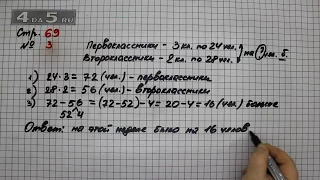 4DA5.RU
Стр. 69
№ 3
Первоклассники - 3 кл. по 24 чел.
Второклассники - 2 кл. по 28 чел.
на ? чел. б.
1) 24·3 = 72 (чел.) - первоклассники
2) 28·2 = 56 (чел.) - второклассники
3) 72-56 = (72-52)-4 = 20-4 = 16 (чел.) больше
52 4
Ответ: на этой неделе было на 16 челов